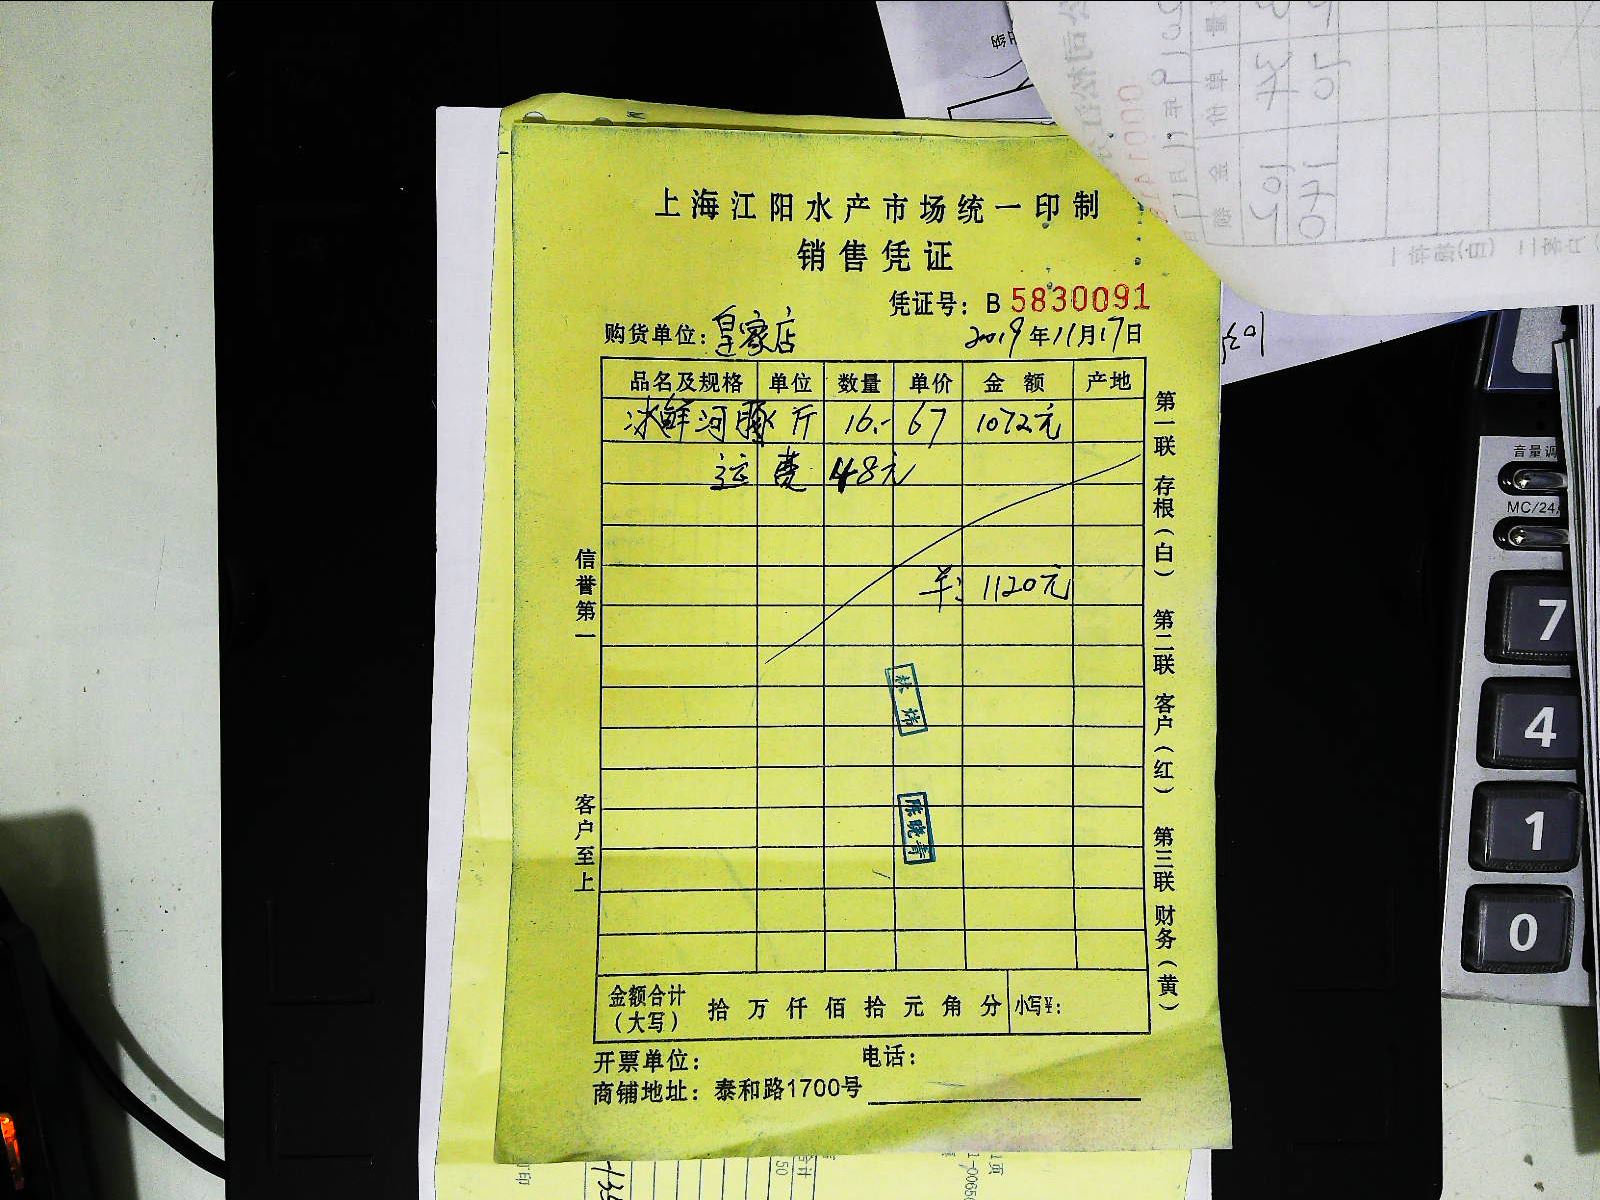 上海江阳水产市场统一印制
销售凭证
凭证号：B 5830091
购货单位：皇家店 2019年11月17日
品名及规格 单位 数量 单价 金额 产地
冰鲜河豚 斤 16.- 67 1072元
运费 48元
1120元
信誉第一
客户至上
第一联 存根（白） 第二联 客户（红） 第三联 财务（黄）
陈晓青
金额合计（大写） 拾 万 仟 佰 拾 元 角 分 小写¥：
开票单位： 电话：
商铺地址：泰和路1700号
音量调
MC/24
7
4
1
0